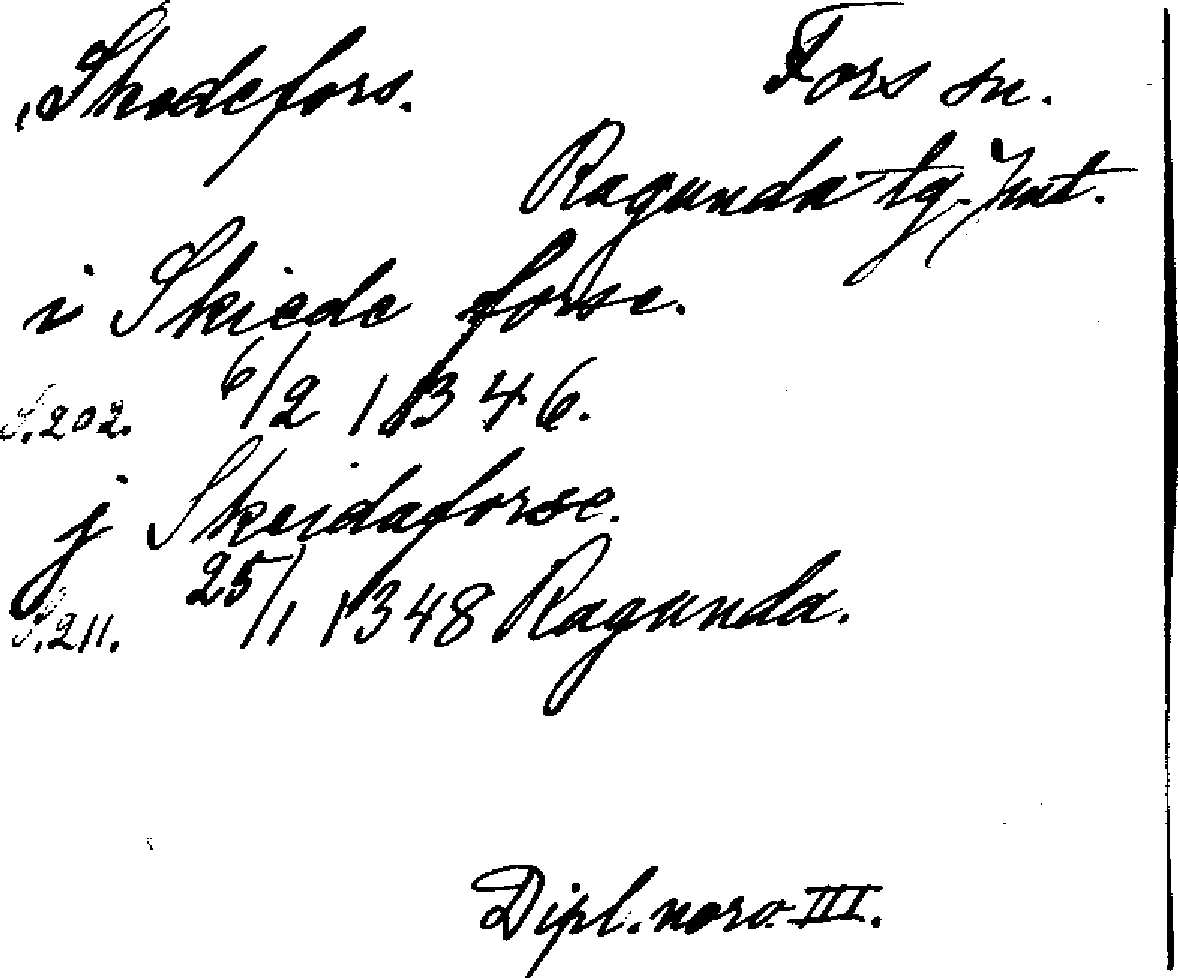 Skodefors. Fors sn.
Ragunda tg. Jmt.
i Skiede forse.
S. 202. 6/2 1346.
j Skeidaforse.
S. 211. 25/1 1348 Ragunda.
Dipl. norv. III.